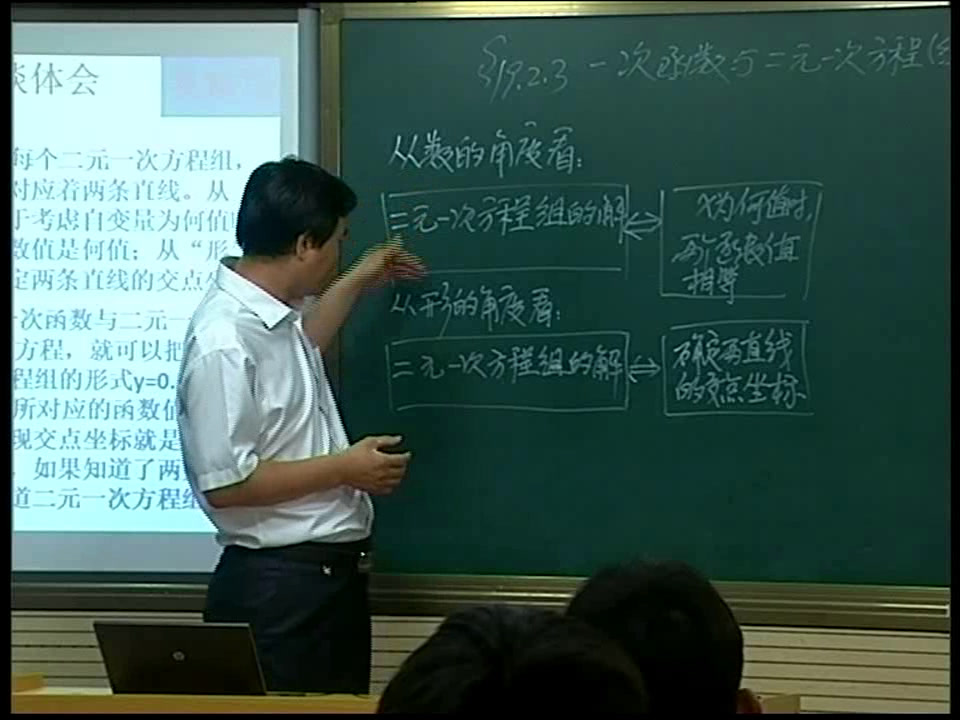 谈体会
每个二元一次方程组,
对应着两条直线。从
于考虑自变量为何值时
数值是何值;从“形
定两条直线的交点坐
一次函数与二元一
方程,就可以把
程组的形式y=0.
所对应的函数值
现交点坐标就是
如果知道了两
道二元一次方程组
§19.2.3 一次函数与二元一次方程(组
从数的角度看:
二元一次方程组的解
x为何值时,
两个函数值
相等
从形的角度看:
二元一次方程组的解
确定两直线
的交点坐标
hp